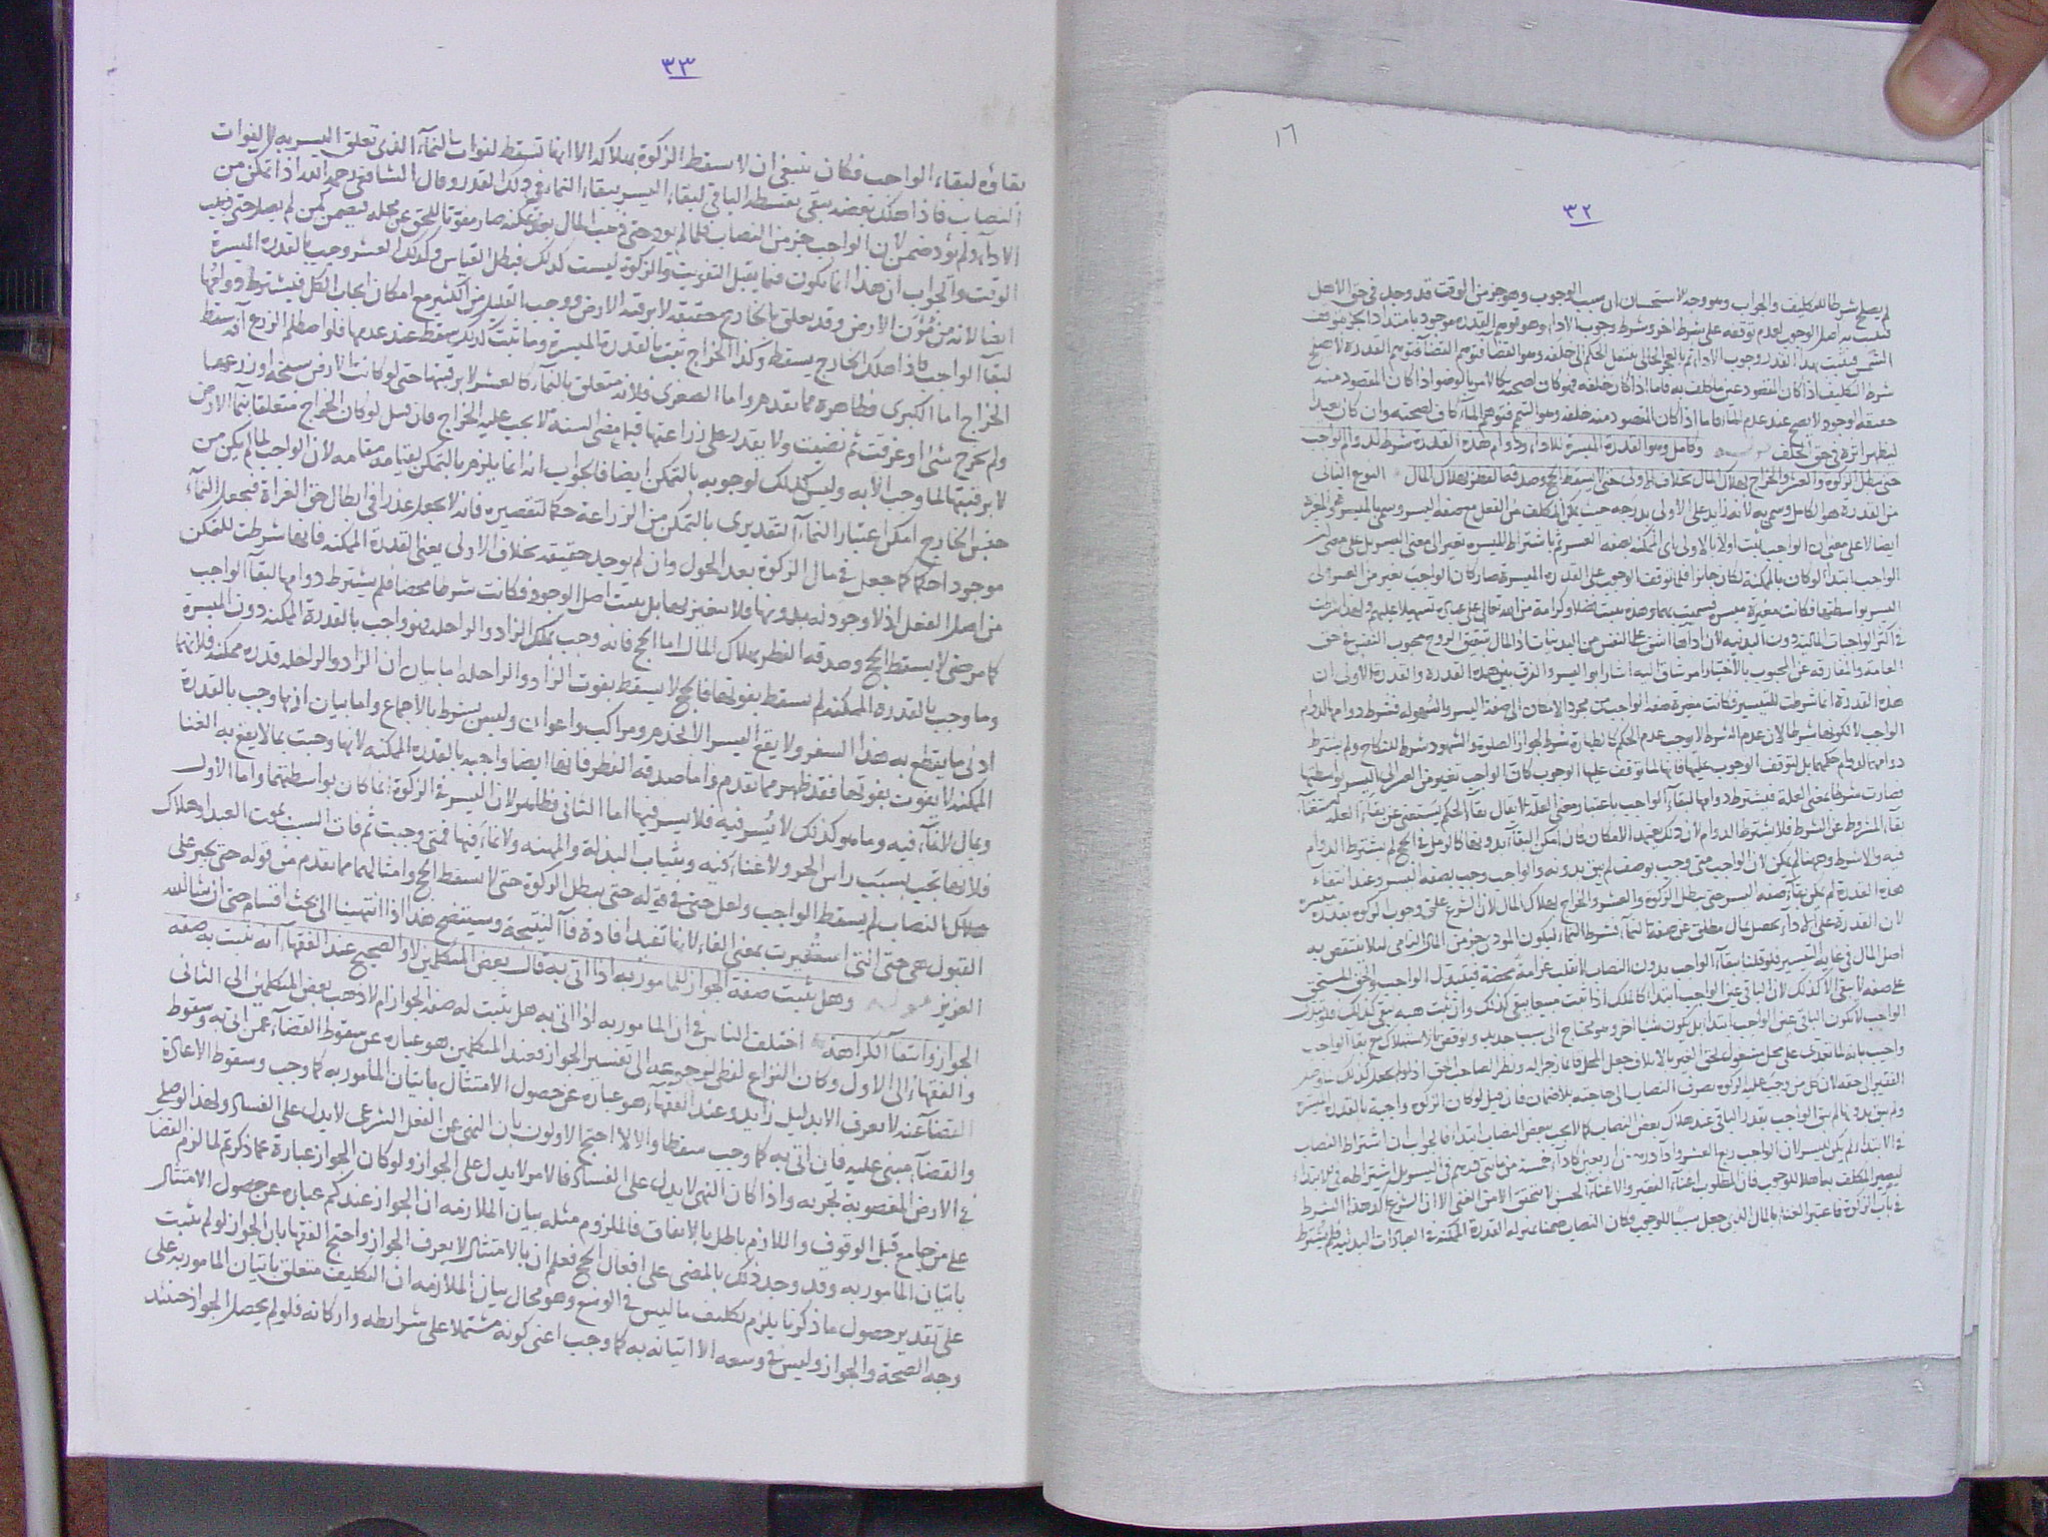 ١٦
٣٢
لم يصلح شرطا للتكليف والجواب وهو وجه الاستحسان ان سبب الوجوب وهو جزء من الوقت قد وجد في حق الاهل
فيثبت به اصل الوجوب لعدم توقفه على شرط اخر وشرط وجوب الاداء وهو توهم القدرة موجود بامتداد الجزء
الشمس فيثبت بهذا القدر وجوب الاداء ثم بالعجز الحالي ينتقل الحكم الى خلفه وهو القضاء فتوهم القدرة لا يصلح
شرط التكليف اذا كان المقصود عين ما كلف به فاما اذا كان خلفه فهو كاف لصحته كالامر بالوضوء اذا كان المقصود منه
حقيقة الوجود لا يصح عند عدم الماء فاما اذا كان المقصود منه خلفه وهو التيمم فتوهم الماء كاف لصحته وان كان بعيدا
ليظهر اثره في حق الخلف وكامل وهو القدرة الميسرة للاداء ودوام هذه القدرة شرط لدوام الواجب
حتى تبطل الزكوة والعشر والخراج بهلاك المال بخلاف الاولى حتى لا يسقط الحج وصدقة الفطر بهلاك المال النوع الثاني
من القدرة هو الكامل وسمي به لانه زايد على الاولى بدرجة حيث يمكن المكلف من الفعل مع صفة اليسر وسمي بالميسرة
ايضا لا على معنى ان الواجب يثبت اولا بالاولى باي الممكنة بصفة العسر ثم باشتراط الميسرة تغير الى معنى اليسر بل على معنى ان
الواجب ابتداء لو كان بالممكنة لكان جائزا فلما توقف الوجوب على القدرة الميسرة صار كان الواجب تغير من العسر الى
اليسر بواسطتها فكانت مغيرة ميسرة فسميت بها وهذه تثبت فضلا وكرامة من الله تعالى على عباده تسهيلا عليهم ولهذا شرطت
في اكثر الواجبات المالية دون البدنية لان اداءها اشق على النفس من البدنيات اذ المال شقيق الروح محبوب النفس في حق
العامة والمفارقة عن المحبوب بالاختيار امر شاق اليه اشار ابو اليسر والفرق بين هذه القدرة والقدرة الاولى ان
هذه القدرة انما شرطت للتيسير فكانت مغيرة صفة الواجب من مجرد الامكان الى صفة اليسر والسهولة فشرط دوامها لدوام
الواجب لا لكونها شرطا لان عدم الشرط لا يوجب عدم الحكم كالطهارة شرط لجواز الصلوة والشهود شرط للنكاح ولم يشترط
دوامها لدوام حكمهما بل لتوقف الوجوب عليها فانها لما توقف عليها الوجوب كان الواجب تغير من العسر الى اليسر بواسطتها
فصارت شرطا بمعنى العلة فيشترط دوامها لبقاء الواجب باعتبار معنى العلة لا يقال بقاء الحكم يستغني عن بقاء العلة
بقاء المشروط عن الشرط فلا يشترط الدوام لان ذلك بعيد الامكان فان امكن البقاء بدونها كالرمل في الحج لم يشترط الدوام
فيه والا شرط وههنا لم يمكن لان الواجب متى وجب بوصف لم يبق بدونه والواجب وجب بصفة اليسر وعند انتفاء
هذه القدرة لم يمكن بقاء صفة اليسر حتى تبطل الزكوة والعشر والخراج بهلاك المال لان الشرع علق وجوب الزكوة بقدرة ميسرة
لان القدرة على الاداء تحصل بمال مطلق عن صفة النماء فشرط النماء ليكون المودى جزء من المال النامي لئلا ينتقص به
اصل المال في غاية التيسير فلو قلنا ببقاء الواجب بدون النصاب لانقلب غرامة محضة فيتبدل الواجب والحق المستحق
على صفة لا يبقى الا كذلك لان الباقي عين الواجب ابتداء كالملك اذا ثبت مبيعا يبقى كذلك وان ثبت هبة يبقى كذلك
الواجب لا يكون الباقي عين الواجب ابتداء بل يكون شيا اخر وهو محتاج الى سبب جديد ونوقض بالاستهلاك مع بقاء الواجب
واجيب بانه لما تعدى على محل مشغول لحق الغير بالابطال جعل المحل قائما زجرا له ونظرا لصاحب الحق اذ لو لم يجعل كذلك
الفقير الى حقه لان كل من وجبت عليه الزكوة يصرف النصاب الى حاجته بلا ضمان فان قيل لو كان الزكوة واجبة بالقدرة الميسرة
ولم يبق بدونها لم يبق الواجب بقدر الباقي عند هلاك بعض النصاب كما لا يجب ببعض النصاب ابتداء فالجواب ان اشتراط النصاب
في الابتداء لم يكن لليسر لان الواجب ربع العشر واداء درهم من اربعين كاداء خمسة من مائتي درهم في اليسر بل اشتراطه في الابتداء
ليصير المكلف به اهلا للوجوب فان المطلوب اغناء الفقير والاغناء الحسن لا يتحقق الا من الغني الا ان الشرع اكد هذا الشرط
في باب الزكوة فاعتبر الغناء بالمال الذي جعل سببا للوجوب فكان النصاب ههنا بمنزلة القدرة الممكنة في العبادات البدنية فلم يشترط
٣٣
بقاؤه لبقاء الواجب فكان ينبغي ان لا يسقط الزكوة بهلاكه الا انها تسقط لفوات النماء الذي تعلق اليسر به لا لفوات
النصاب فاذا هلك بعضه يبقى بقسطه الباقي لبقاء اليسر ببقاء النماء في ذلك القدر وقال الشافعي رحمه الله اذا تمكن من
الاداء ولم يؤد ضمن لان الواجب جزء من النصاب فلما لم يؤد حتى ذهب المال بعد تمكنه صار مفوتا للحق عن محله فيضمن كمن لم يصل حتى ذهب
الوقت والجواب ان هذا انما يكون فيما يقبل التفويت والزكوة ليست كذلك فبطل القياس وكذلك العشر وجب بالقدرة الميسرة
ايضا لانه من مؤن الارض وقد تعلق بالخارج حقيقة لا برقبة الارض ووجب القليل من الكثير مع امكان ايجاب الكل فيشترط دوامها
لبقاء الواجب فاذا هلك الخارج يسقط وكذا الخراج ثبت بالقدرة الميسرة وما ثبت كذلك سقط عند عدمها فلو اصطلم الزرع افة سقط
الخراج اما الكبرى فظاهرة مما تقدم واما الصغرى فلانه متعلق بالنماء كالعشر لا برقبتها حتى لو كانت الارض سبخة او زرعها
ولم يخرج شئ او غرقت ثم نضبت ولا يقدر على زراعتها قبل مضي السنة لا يجب عليه الخراج فان قيل لو كان الخراج متعلقا بنماء الارض
لا برقبتها لما وجب الا به وليس كذلك لوجوبه بالتمكن ايضا فالجواب انه انما يلزم بالتمكن لقيامه مقامه لان الواجب لما لم يكن من
جنس الخارج امكن اعتبار النماء التقديري بالتمكن من الزراعة حكما لتقصيره فانه لا يجعل عذرا في ابطال حق الغزاة فيجعل النماء
موجودا حكما كما جعل في مال الزكوة بعد الحول وان لم يوجد حقيقة بخلاف الاولى يعني القدرة الممكنة فانها شرطت للتمكن
من اصل الفعل اذ لا وجود له بدونها فلا يتغير بها بل يثبت اصل الوجود فكانت شرطا محضا فلم يشترط دوامها لبقاء الواجب
كما مر حتى لا يسقط الحج وصدقة الفطر بهلاك المال اما الحج فانه وجب بملك الزاد والراحلة فهو واجب بالقدرة الممكنة دون الميسرة
وما وجب بالقدرة الممكنة لم يسقط بفوتها فالحج لا يسقط بفوت الزاد والراحلة اما بيان ان الزاد والراحلة قدرة ممكنة فلانهما
ادنى ما يقطع به هذا السفر ولا يقع اليسر الا بخدم ومراكب واعوان وليس بشرط بالاجماع واما بيان ان ما وجب بالقدرة
الممكنة لا يفوت بفوتها فقد ظهر مما تقدم واما صدقة الفطر فانها ايضا واجبة بالقدرة الممكنة لانها وجبت بما لا يقع به الغنا
وبمال لا نماء فيه وما هو كذلك لا يسر فيه فلا يسر فيها اما الثاني فظاهر لان اليسر في الزكوة انما كان بواسطتهما واما الاول
فلانها تجب بسبب راس الحر ولا غناء فيه وبثياب البذلة والمهنة ولا نماء فيها فمتى وجبت ثم فات السبب بموت العبد او هلاك
النصاب لم يسقط الواجب ولعل حتى في قوله حتى تبطل الزكوة حتى لا يسقط الحج وامثالهما مما تقدم من قوله حتى يجبر على
القبول هي حتى التي استعيرت بمعنى الفاء لانها تفيد افادة فاء النتيجة وسيتضح هذا اذا انتهينا الى بحث اقسام حتى ان شاء الله
العزيز وهل يثبت صفة الجواز للمامور به اذا اتى به قال بعض المتكلمين لا والصحيح عند الفقهاء انه يثبت به صفة
الجواز وانتفاء الكراهة اختلف الناس في ان المامور به اذا اتى به هل يثبت له صفة الجواز ام لا ذهب بعض المتكلمين الى الثاني
والفقهاء الى الاول وكان النزاع لفظي لرجوعه الى تفسير الجواز فعند المتكلمين هو عبارة عن سقوط القضاء عمن اتى به وسقوط
القضاء عنه لا يعرف الا بدليل زايد وعند الفقهاء هو عبارة عن حصول الامتثال باتيان المأمور به كما وجب وسقوط الاعادة
والقضاء مبني عليه فان اتى به كما وجب سقطا والا لا احتج الاولون بان النهي عن الفعل الشرعي لا يدل على الفساد ولهذا لو صلى
في الارض المغصوبة تجزيه واذا كان النهي لا يدل على الفساد فالامر لا يدل على الجواز ولو كان الجواز عبارة عما ذكرتم لما لزم القضاء
على من جامع قبل الوقوف واللازم باطل بالاتفاق فالملزوم مثله بيان الملازمة ان الجواز عندكم عبارة عن حصول الامتثال
باتيان المامور به وقد وجد ذلك بالمضي على افعال الحج فعلم ان بالامتثال لا يعرف الجواز واحتج الفقهاء بان الجواز لو لم يثبت
على تقدير حصول ما ذكرنا يلزم تكليف ما ليس في الوسع وهو محال بيان الملازمة ان التكليف متعلق باتيان المامور به على
وجه الصحة والجواز وليس في وسعه الا اتيانه به كما وجب اعني كونه مشتملا على شرايطه واركانه فلو لم يحصل الجواز حينئذ